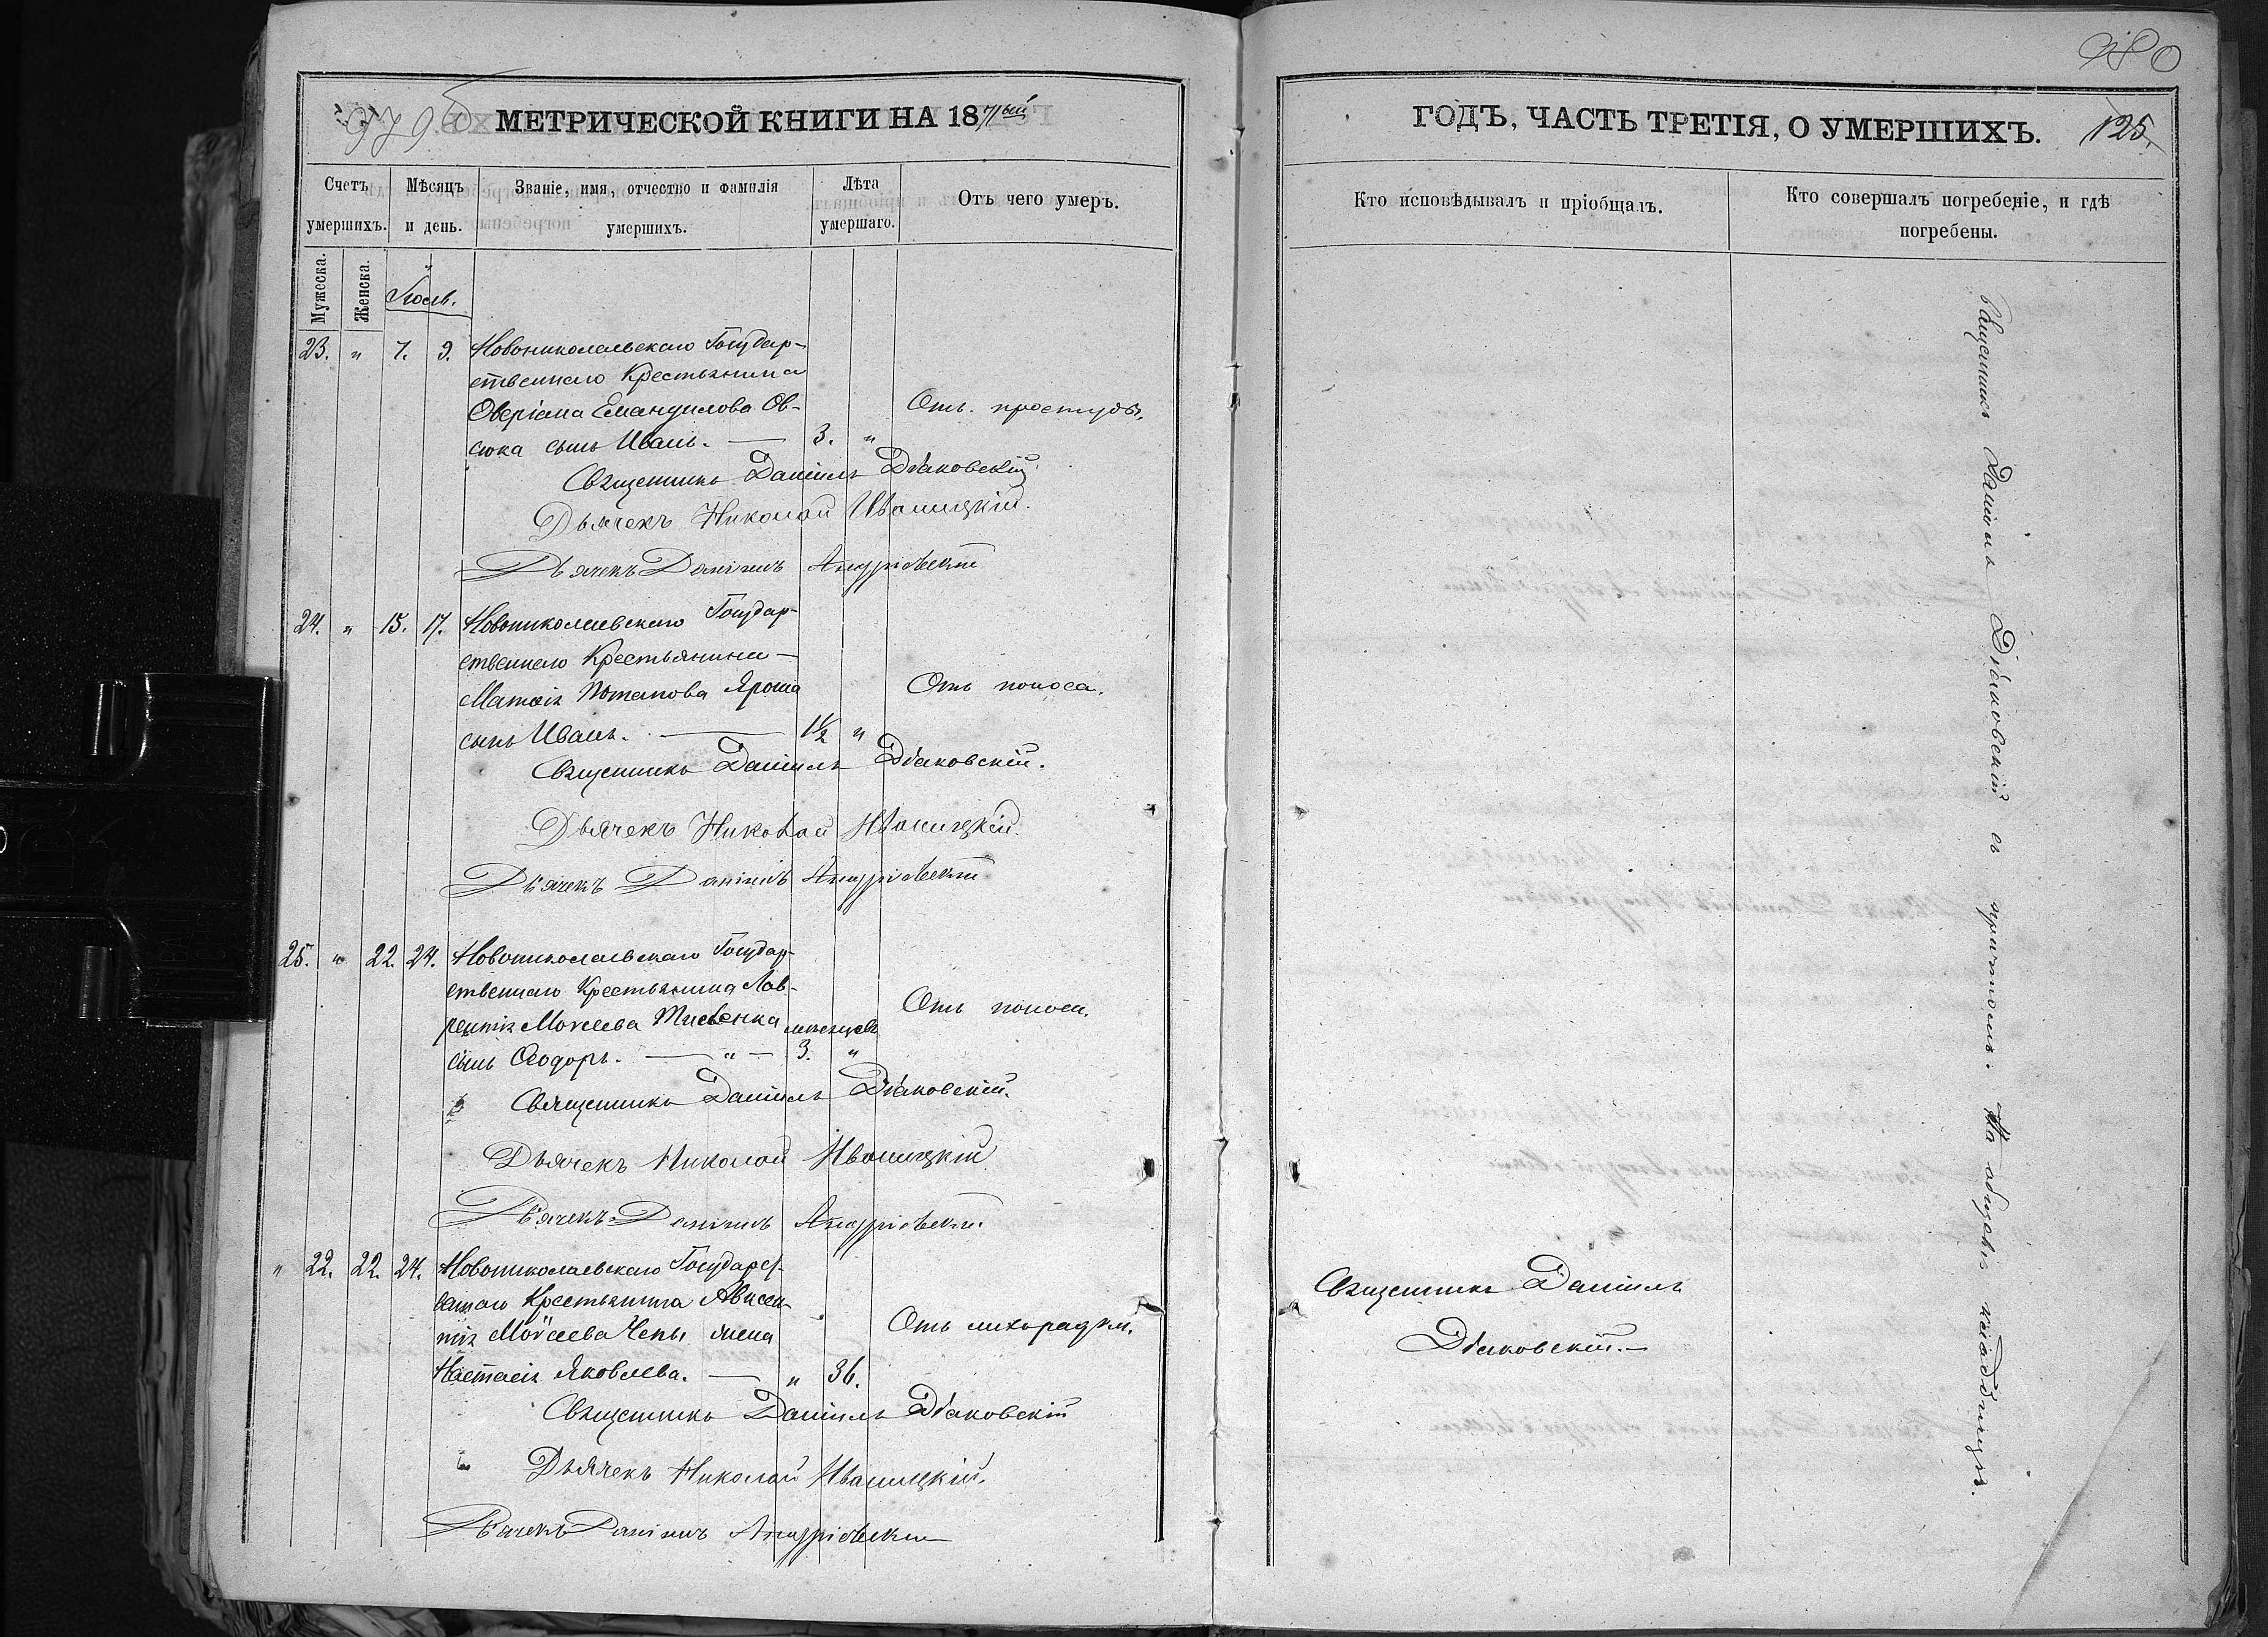 979б
МЕТРИЧЕСКОЙ КНИГИ НА 1871ый
Счетъ умершихъ.
Мѣсяцъ и день.
Званіе, имя, отчество и фамилія умершихъ.
Лѣта умершаго.
Отъ чего умеръ.
Мужеска.
Женска.
Іюль.
23. " 7. 9. Новониколаевскаго Государ-
ственнаго Крестьянина
Овсюка сынъ Иванъ. — 3. "
Отъ простуды.
Священникъ Даніилъ Діаковскій
Дьячекъ Николай Иваницкій.
Дьячекъ Даніилъ Андріевскій
24. " 15. 17. Новониколаевскаго Государ-
ственнаго Крестьянина
Матвія Потапова Яроша
Отъ поноса.
сынъ Иванъ. — 1½ "
Священникъ Даніилъ Діаковскій.
Дьячекъ Николай Иваницкій.
Дьячекъ Даніилъ Андріевскій
25. " 22. 24. Новониколаевскаго Государ-
ственнаго Крестьянина Лав-
рентія Моисеева мѣсяцевъ
Отъ поноса.
сынъ Ѳеодоръ. — " — 3. "
Священникъ Даніилъ Діаковскій.
Дьячекъ Николай Иваницкій
Дьячекъ Даніилъ Андріевскій
" 22. 22. 24. Новониколаевскаго Государст-
веннаго Крестьянина Авксен-
тія Моѵсеева Чепы жена
Отъ лихорадки.
Настасія Яковлева. — " 36.
Священникъ Даніилъ Діаковскій
Дьячекъ Николай Иваницкій.
Дьячекъ Даніилъ Андріевскій
980
ГОДЪ, ЧАСТЬ ТРЕТІЯ, О УМЕРШИХЪ. 125.
Кто исповѣдывалъ и пріобщалъ.
Кто совершалъ погребеніе, и гдѣ погребены.
Священникъ Даніилъ
Діаковскій.—
Священникъ Даніилъ Діаковскій съ причтомъ. На общемъ кладбищѣ.